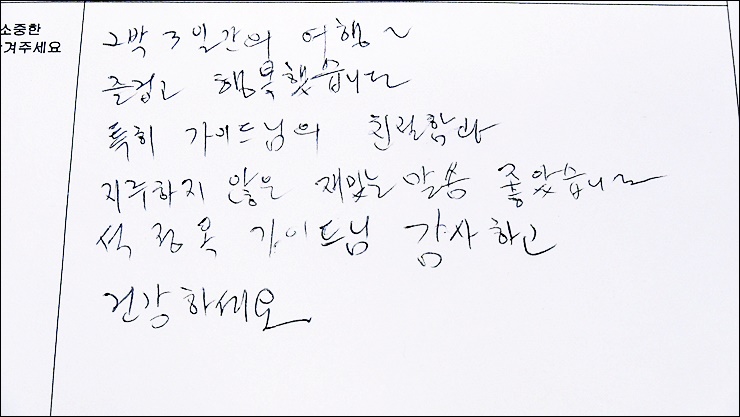 소중한
겨주세요
2박 3일간의 여행~
즐겁고 행복했습니다
특히 가이드님의 친절함과
지루하지 않은 재밌는 말씀 좋았습니다
석정옥 가이드님 감사하고
건강하세요